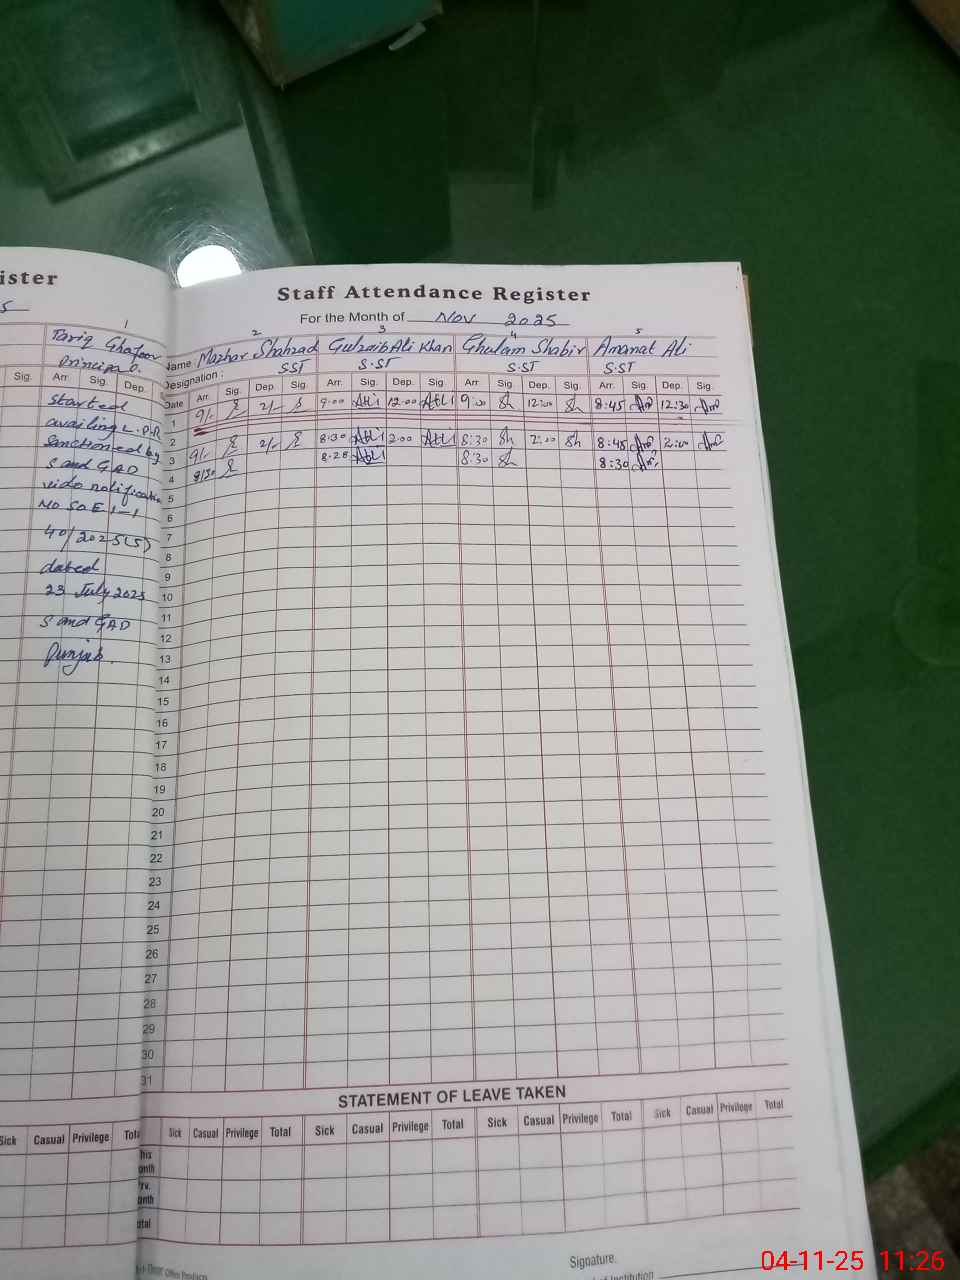 ister
5
1
Tariq Ghafoor
Principal.
Sig. Arr. Sig. Dep.
started
availing L.P.R
Sanctioned by
S and GAD
vido notification
No SOE 1-1
40/2025(5)
dated
23 July 2025
S and GAD
Punjab.
Sick Casual Privilege Tota
Staff Attendance Register
For the Month of Nov 2025
2 3 4 5
Name Mazhar Shahzad Gulzaib Ali Khan Ghulam Shabir Amanat Ali
Designation : SST S.ST S.ST S.ST
Date Arr. Sig. Dep. Sig. Arr. Sig. Dep. Sig. Arr. Sig. Dep. Sig. Arr. Sig. Dep. Sig.
1 9/- 2/- 9:00 12:00 9:00 Sh 12:00 Sh 8:45 12:30
2
3 9/- 2/- 8:30 2:00 8:30 Sh 2:00 Sh 8:45 2:00
4 8/30 8:28 8:30 Sh 8:30
5
6
7
8
9
10
11
12
13
14
15
16
17
18
19
20
21
22
23
24
25
26
27
28
29
30
31
STATEMENT OF LEAVE TAKEN
Sick Casual Privilege Total Sick Casual Privilege Total Sick Casual Privilege Total Sick Casual Privilege Total
This
onth
rv.
onth
otal
Signature.
of Institution
04-11-25 11:26